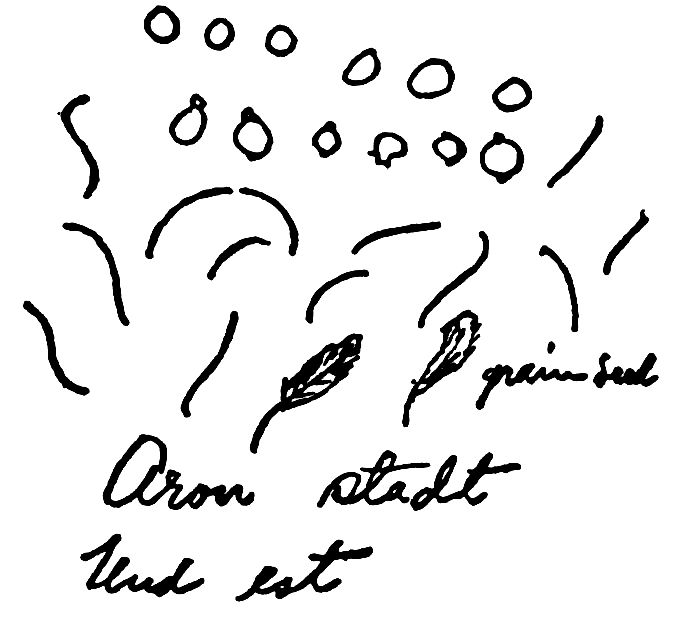 grain seed
Aron stadt
Und est